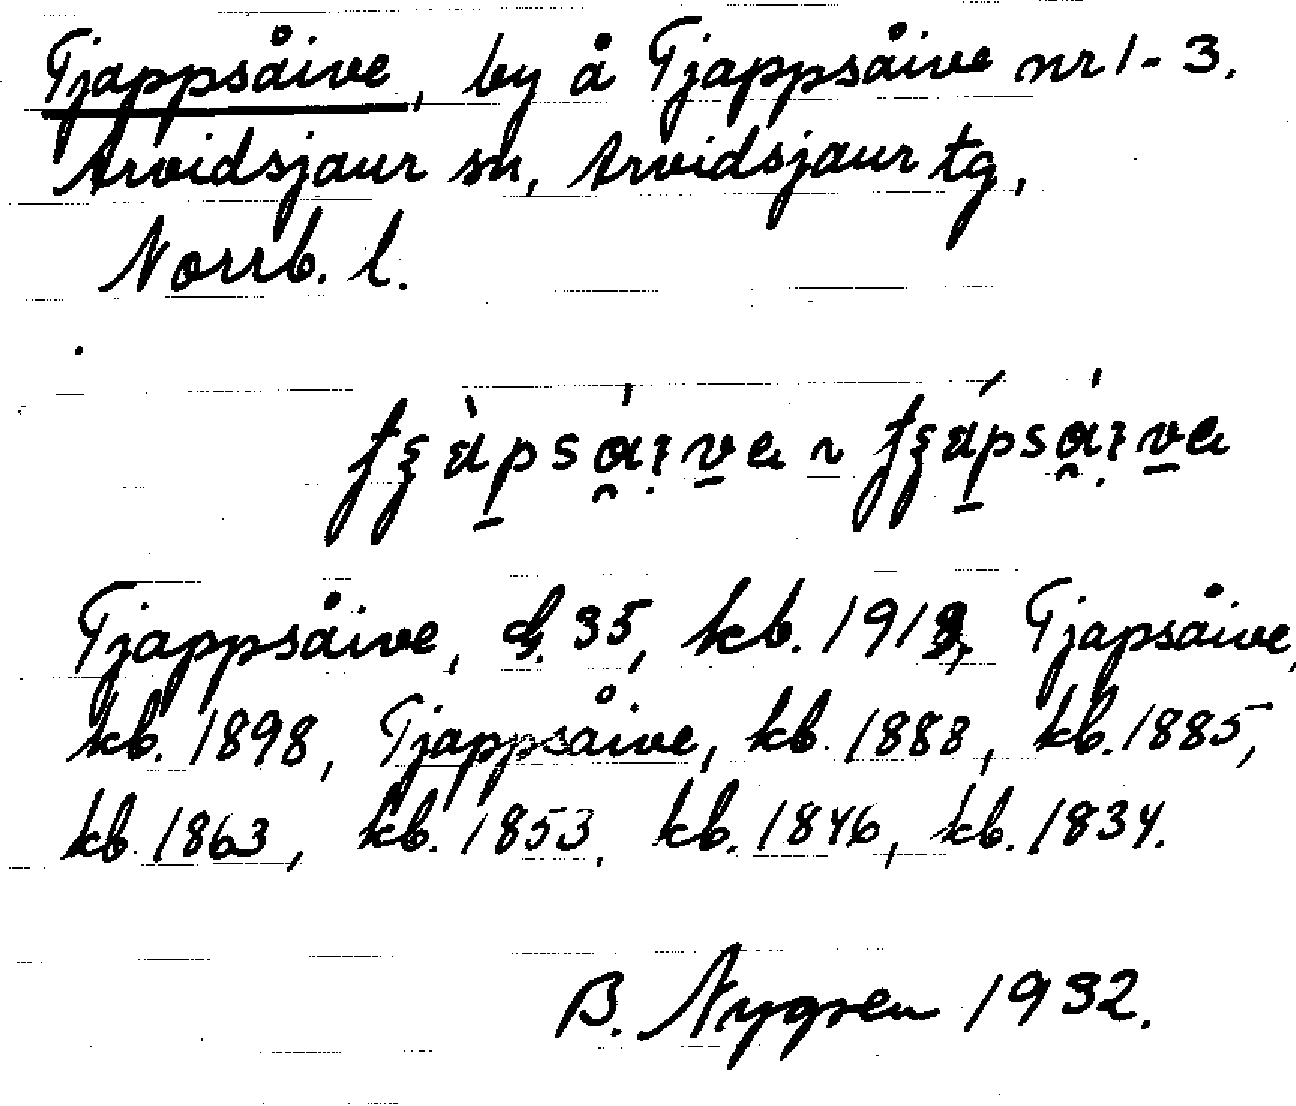 Tjappsåive, by å Tjappsåive nr 1-3.
Arvidsjaur sn, Arvidsjaur tg,
Norrb. l.
Tjappsåive, 35, kb. Tjapsåive,
kb. 1898, Tjappsåive, kb. 1888, kb. 1885,
kb 1863, kb. 1853, kb. 1846, kb. 1834.
B. Nygren 1932.